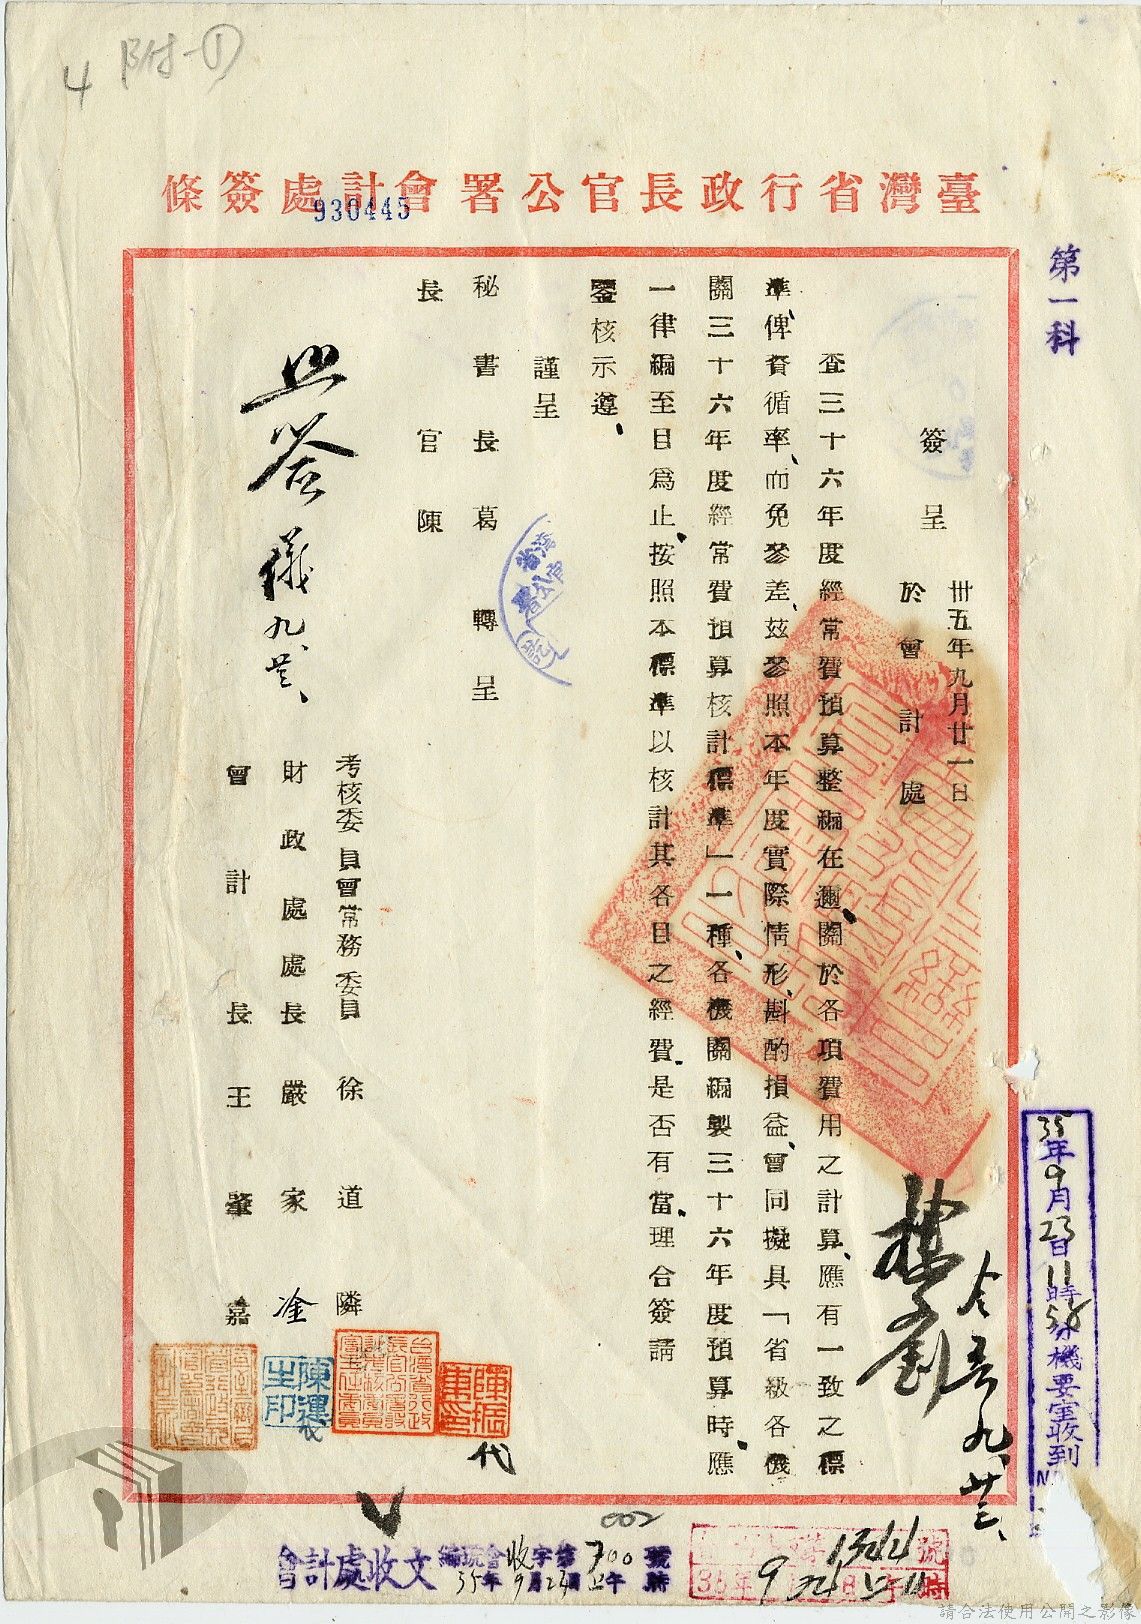 4
附-①
臺灣省行政長官公署會計處簽條
930445
第一科
卅五年九月廿一日
簽呈
於會計處
查三十六年度經常費預算整編在邇、關於各項費用之計算、應有一致之標
準、俾資循率、而免參差、茲參照本年度實際情形、斟酌損益、會同擬具「省級各機
關三十六年度經常費預算核計標準」一種、各機關編製三十六年度預算時、應
一律編至目為止、按照本標準以核計其各目之經費、是否有當、理合簽請
鑒核示遵、
謹呈
秘書長葛 轉呈
長官陳
考核委員會常務委員徐道隣
財政處處長嚴家淦
會計長王肇嘉
照簽 儀 九、廿三、
代
陳運生印
35年9月23日11時58分機要室收到
九、廿三、
會計處收文
35年9月23日
1344號
002
700號
請合法使用公開之影像